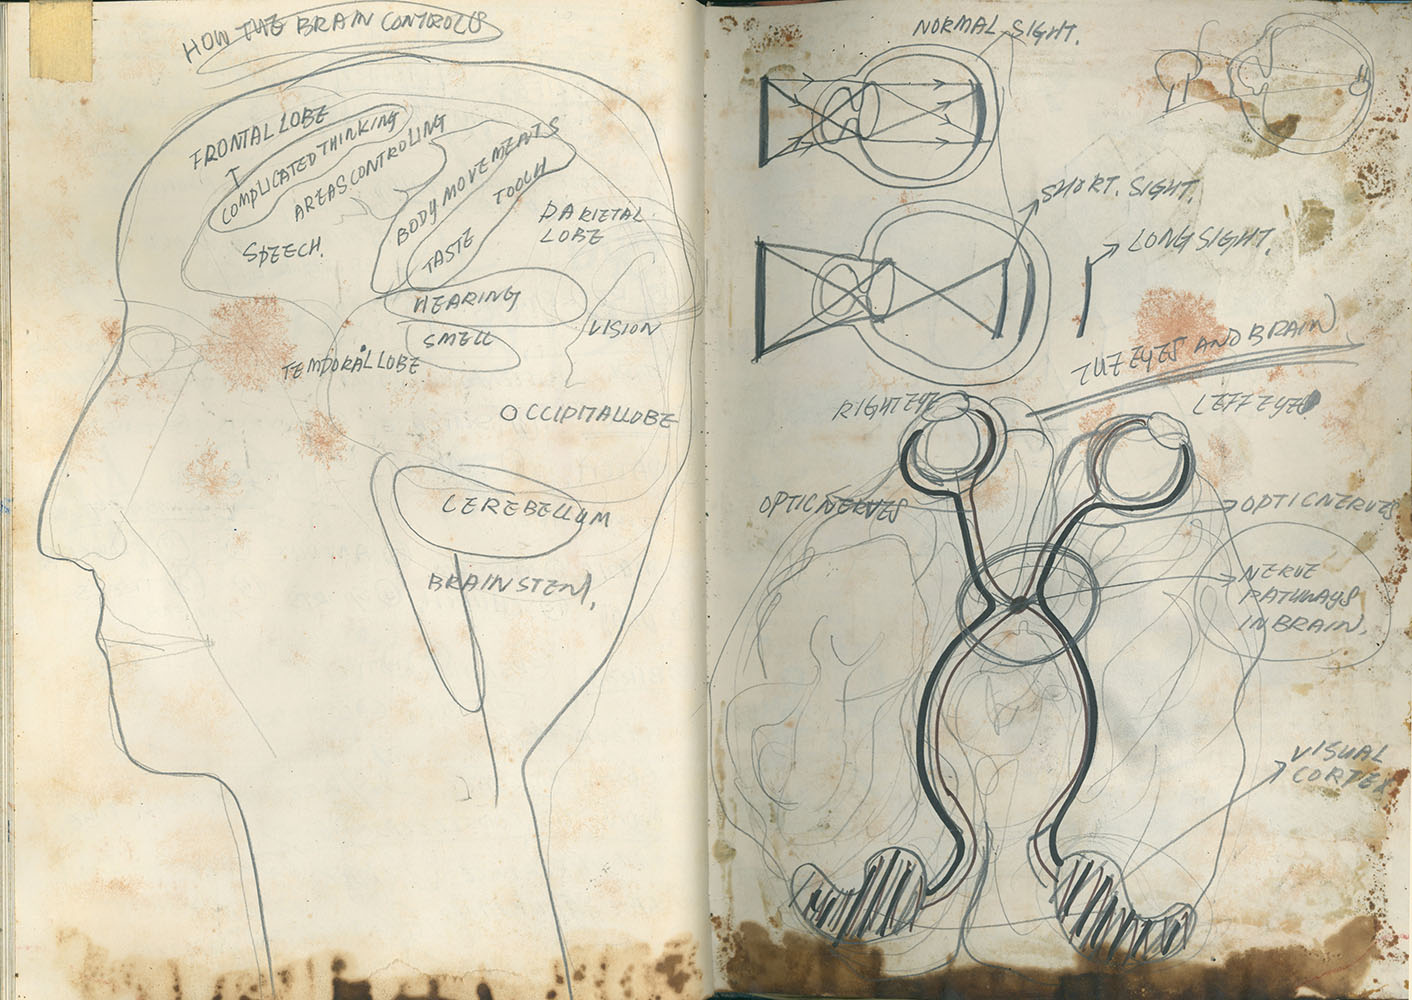 HOW THE BRAIN CONTROLS
FRONTAL LOBE
COMPLICATED THINKING
AREAS CONTROLING
SPEECH.
BODY MOVEMENTS
TOOCH
TASTE
PARIETAL
LOBE
HEARING
SMELL
VISION
TEMPORAL LOBE
OCCIPITALLOBE
CEREBELLUM
BRAIN STEM.
NORMAL SIGHT.
SHORT. SIGHT.
LONG SIGHT.
THE EYES AND BRAIN
RIGHT EYE
LEFT EYE
OPTIC NERVES
OPTIC NERVES
NERVE
PATHWAYS
IN BRAIN.
VISUAL
CORTEX